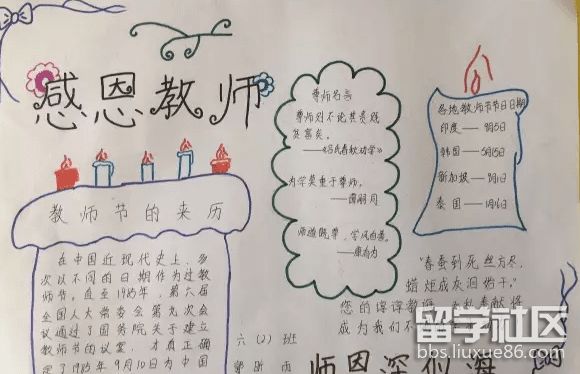 感恩教师
教师节的来历
在中国近现代史上，多
次以不同的日期作为过教
师节。直至1985年，第六届
全国人大常委会第九次会
议通过了国务院关于建立
教师节的议案，才真正确
定了1985年9月10日为中国
尊师名言
尊师则不论其贵贱
贫富矣。
——《吕氏春秋劝学》
为学莫重于尊师。
——谭嗣同
师道既尊，学风自善。
——康有为
各地教师节节日日期
印度——9月5日
韩国——5月15日
新加坡——9月1日
泰国——1月16日
"春蚕到死丝方尽，
蜡炬成灰泪始干。"
您的谆谆教
成为我们不
六（2）班
师恩深似海
留学社区
bbs.liuxue86.com